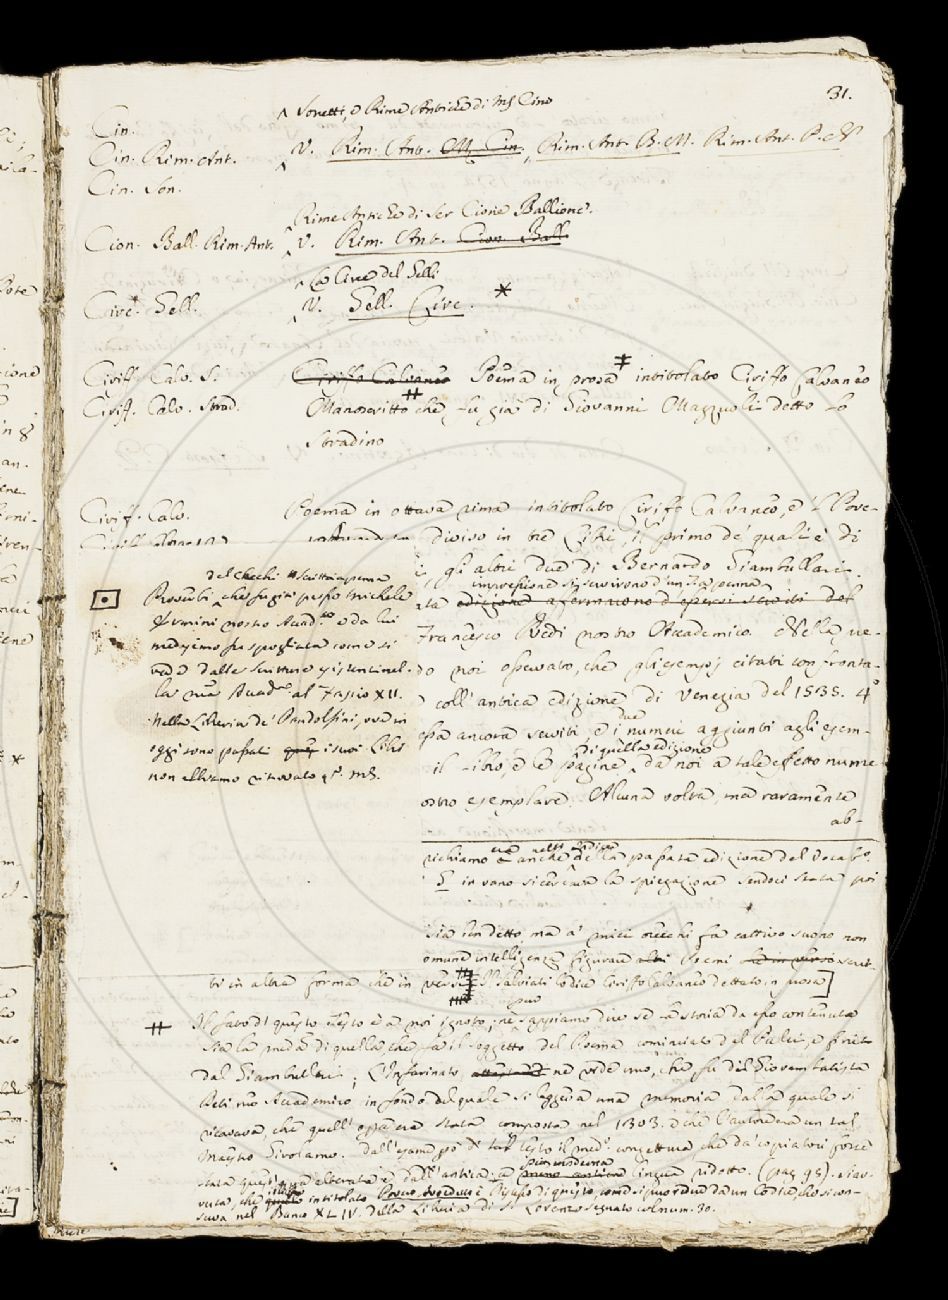 31.
^ Sonetti, e Rime Antiche di M. Cino
Cin.
Cin. Rim. Ant. V. Rim. Ant. M. Cin. Rim. Ant. B. M. Rim. Ant. P. N.
Cin. Son.
Rime Antiche di Ser Cione Ballione.
Cion. Ball. Rim. Ant. V. Rim. Ant. Cion. Ball.
La Circe del Gelli
Circ. Gell. V. Gell. Circ. *
Ciriff. Calv. S. Ciriffo Calvaneo Poema in prosa ⌗ intitolato Ciriffo Calvaneo
Ciriff. Calv. Strad. Manoscritto ⌗ che fu già di Giovanni Mazzuoli detto lo
Stradino
Ciriff. Calv. Poema in ottava rima intitolato Ciriffo Calvaneo, e 'l Pove-
diviso in tre Libri, il primo de' quali è di
gli altri due di Bernardo Giambullari.
impressione si servirono d'un
edizione affermano d'essersi serviti del
Francesco Redi nostro Accademico. Nella ve-
do noi osservato, che gli esempj citati confronta-
coll'antica edizione di Venezia del 1535. 4°
essa ancora serviti, e i due numeri aggiunti agli esem-
il Libro, e le pagine di quella edizione da noi a tale effetto nume-
ostro esemplare. Alcuna volta, ma raramente
ab-
del Cecchi # scritti a penna
Proverbi ^ che fu già presso Michele
Ermini nostro Accad.co e da lui
medesimo fu spogliata come si
vede dalle scritture esistenti nel-
la nra Accad.a al Fascio XII.
Nella Libreria de' Pandolfini, ove in
oggi sono passati i suoi Libri
non abbiamo ritrovato q.o ms.
richiamo anche della passata edizione del Vocab.o
in vano si cercava la spiegazione sendoci stata poi
sia ben detto, ma a' miei orecchi fa cattivo suono non
omune intelligenza figurare altri Poemi scrit-
ti in altra forma che in versi Il Salviati Codice Ciriffo Calvaneo dettato in prosa]
può
⌗ Il fato di questo testo è a noi ignoto, nè sappiamo dire se la storia da esso contenuta
sia la med.a di quella, che fa il soggetto del Poema cominciato dal Pulci, e finito
dal Giambullari; L'Infarinato ne vide uno, che fu del Giovambatista
Deti nro Accademico in fondo del quale si leggeva una memoria dalla quale si
ricavava, che quell'opera era stata composta nel 1303. e che l'autore era un tal
Maestro Girolamo. dall'esame poi di tal testo il med.o congettura che da' copiatori forse
stata quest'opera alterata e dall'antica a più moderna lingua ridotta. (pag. 95).
vuta, che intitolato Povero Avveduto è di questo, come si può vedere da un Codice, che si con-
serva nel Banco XLIV. della Libreria di S. Lorenzo segnato col num. 30.